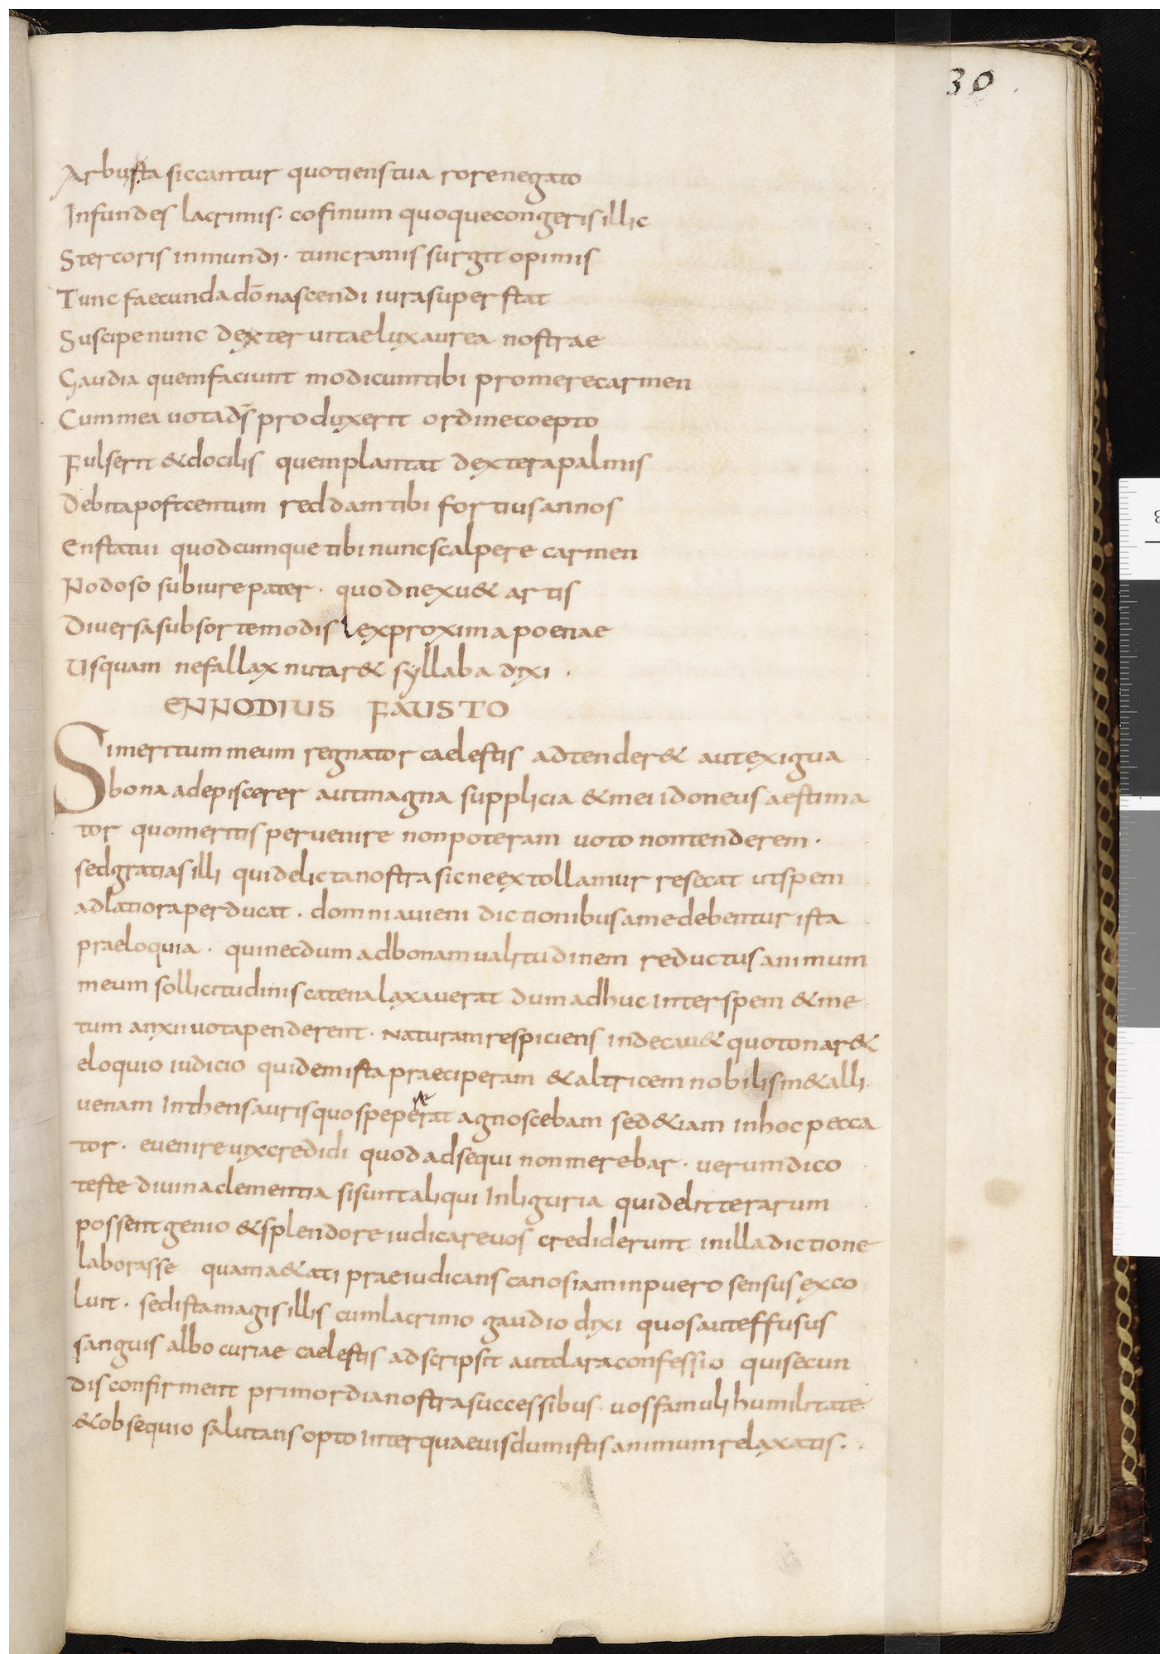 30
Arbusta siccantur quotiens tua rore negato
Infundes lacrimis· cofinum quoque congeris illic
Stercoris inmundi· tunc ramis surgit opimis
Tunc faecunda dō nascendi iura superstat
Suscipe nunc dexter uitae lux aurea nostrae
Gaudia quem faciunt modicum tibi promere carmen
Cum mea uota dš produxerit ordine coepto
Fulserit & docilis quem plantat dextera palmis
Debita post centum reddam tibi fortius annos
En statui quodcumque tibi nunc scalpere carmen
Nodoso sub iure pater· quod nexu & artis
Diuersa sub sorte modis lex proxima poenae
Usquam ne fallax nutar& syllaba dixi·
ENNODIUS FAUSTO
Si meritum meum regnator caelestis adtender& aut exigua
bona adepiscerer aut magna supplicia & mei idoneus aestima
tor quo meritis peruenire non poteram uoto non tenderem·
sed gratias illi qui delicta nostra sic ne extollamur resecat ut spem
ad latiora perducat· domni auieni dictionibus a me debentur ista
praeloquia· qui necdum ad bonam ualitudinem reductus animum
meum sollicitudinis catena laxauerat dum adhuc inter spem & me
tum anxii uota penderent· Naturam respiciens indecau& quo tonar&
eloquio iudicio quidem ista praeciperam & altricem nobilis m&alli
uenam in thensauris quos peperat agnoscebam sed &iam in hoc pecca
tor· euenire uix credidi quod adsequi non merebar· uerum dico
teste diuina clementia si sunt aliqui in liguria qui de litterarum
possent genio & splendore iudicare uos crediderunt in illa dictione
laborasse quam a&ati praeiudicans canos iam in puero sensus exco
luit· sed ista magis illis cum lacrimo gaudio dixi quos aut effusus
sanguis albo curiae caelestis adscripsit aut clara confessio qui secun
dis confirment primordia nostra successibus· uos famuli humilitate
& obsequio salutans opto inter quaeuis dum istis animum relaxatis·